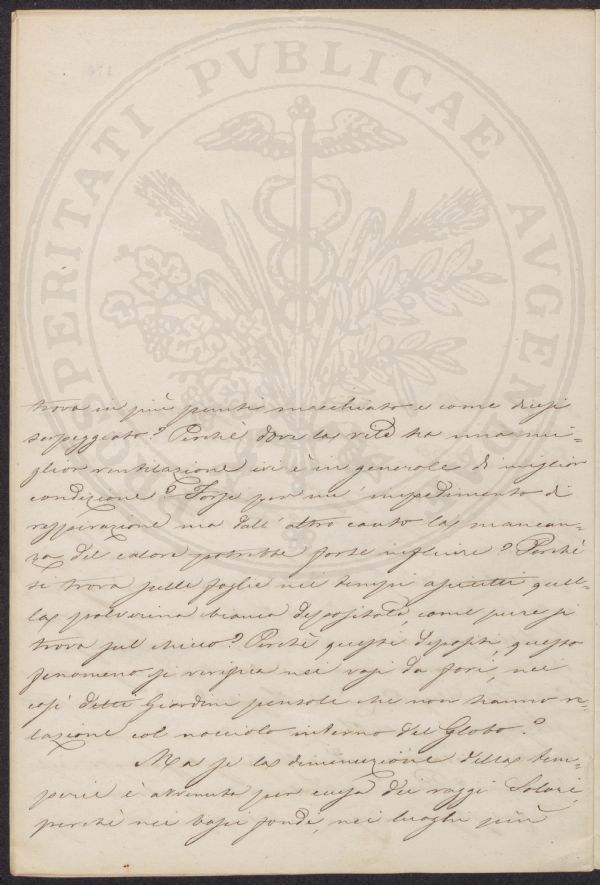 PROSPERITATI PVBLICAE AVGENDAE
trova in più punti macchiato e come diresi
serpeggiato? Perchè dove la vite ha una mi=
glior ventilazione ivi è in generale di miglior
condizione? Forse per un' impedimento di
respirazione ma dall' altro canto la mancan=
za del calore potrebbe forse influire? Perchè
si trova sulle foglie nei tempi asciutti quel=
la polverina bianca depositata, come pure si
trova sul chicco? Perchè questi depositi, questo
fenomeno si verifica nei vasi da fiori, nei
così detti Giardini pensili che non hanno re=
lazione col nocciolo interno del Globo?
Ma se la diminuzione della tem=
perie è avvenuta per causa dei raggi Solari,
perchè nei bassi fondi, nei luoghi più